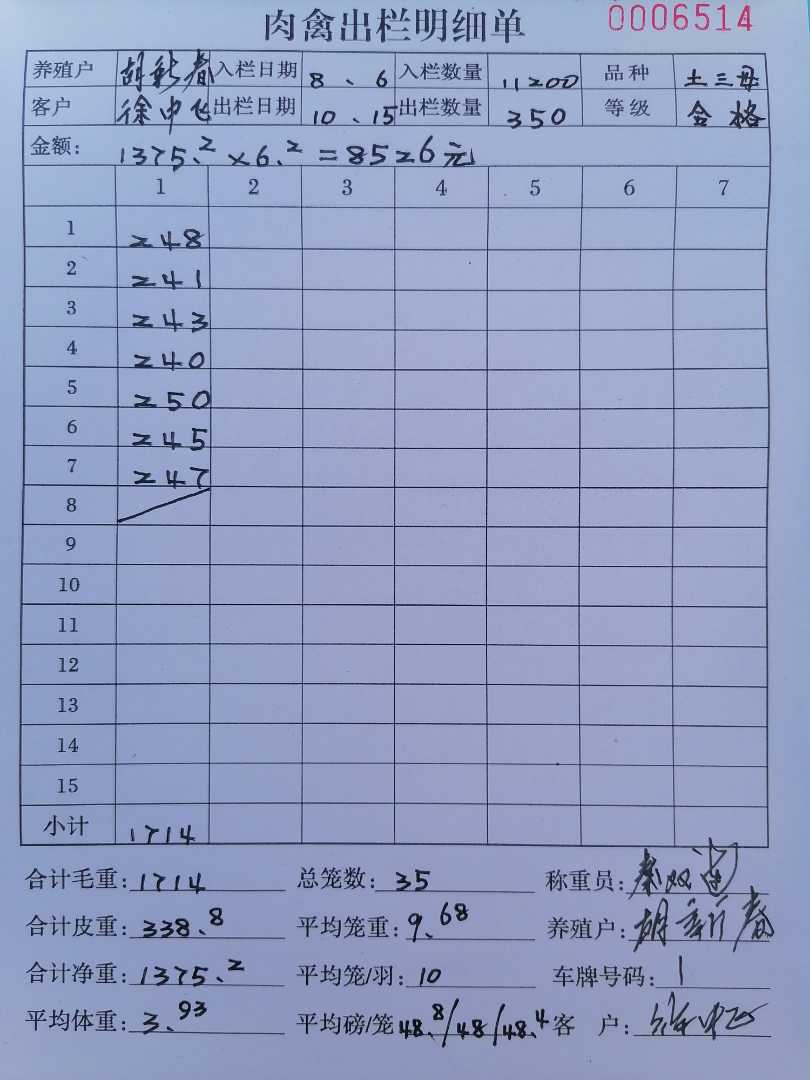 肉禽出栏明细单 0006514
养殖户 胡新春 入栏日期 8、6 入栏数量 11200 品种 土三母
客户 徐中飞 出栏日期 10、15 出栏数量 350 等级 合格
金额: 1375.2×6.2=8526元
1 2 3 4 5 6 7
1 248
2 241
3 243
4 240
5 250
6 245
7 247
8
9
10
11
12
13
14
15
小计 1714
合计毛重: 1714 总笼数: 35 称重员: 秦双
合计皮重: 338.8 平均笼重: 9.68 养殖户: 胡新春
合计净重: 1375.2 平均笼/羽: 10 车牌号码: 1
平均体重: 3.93 平均磅/笼 48.8/48/48.4 客 户: 徐中飞